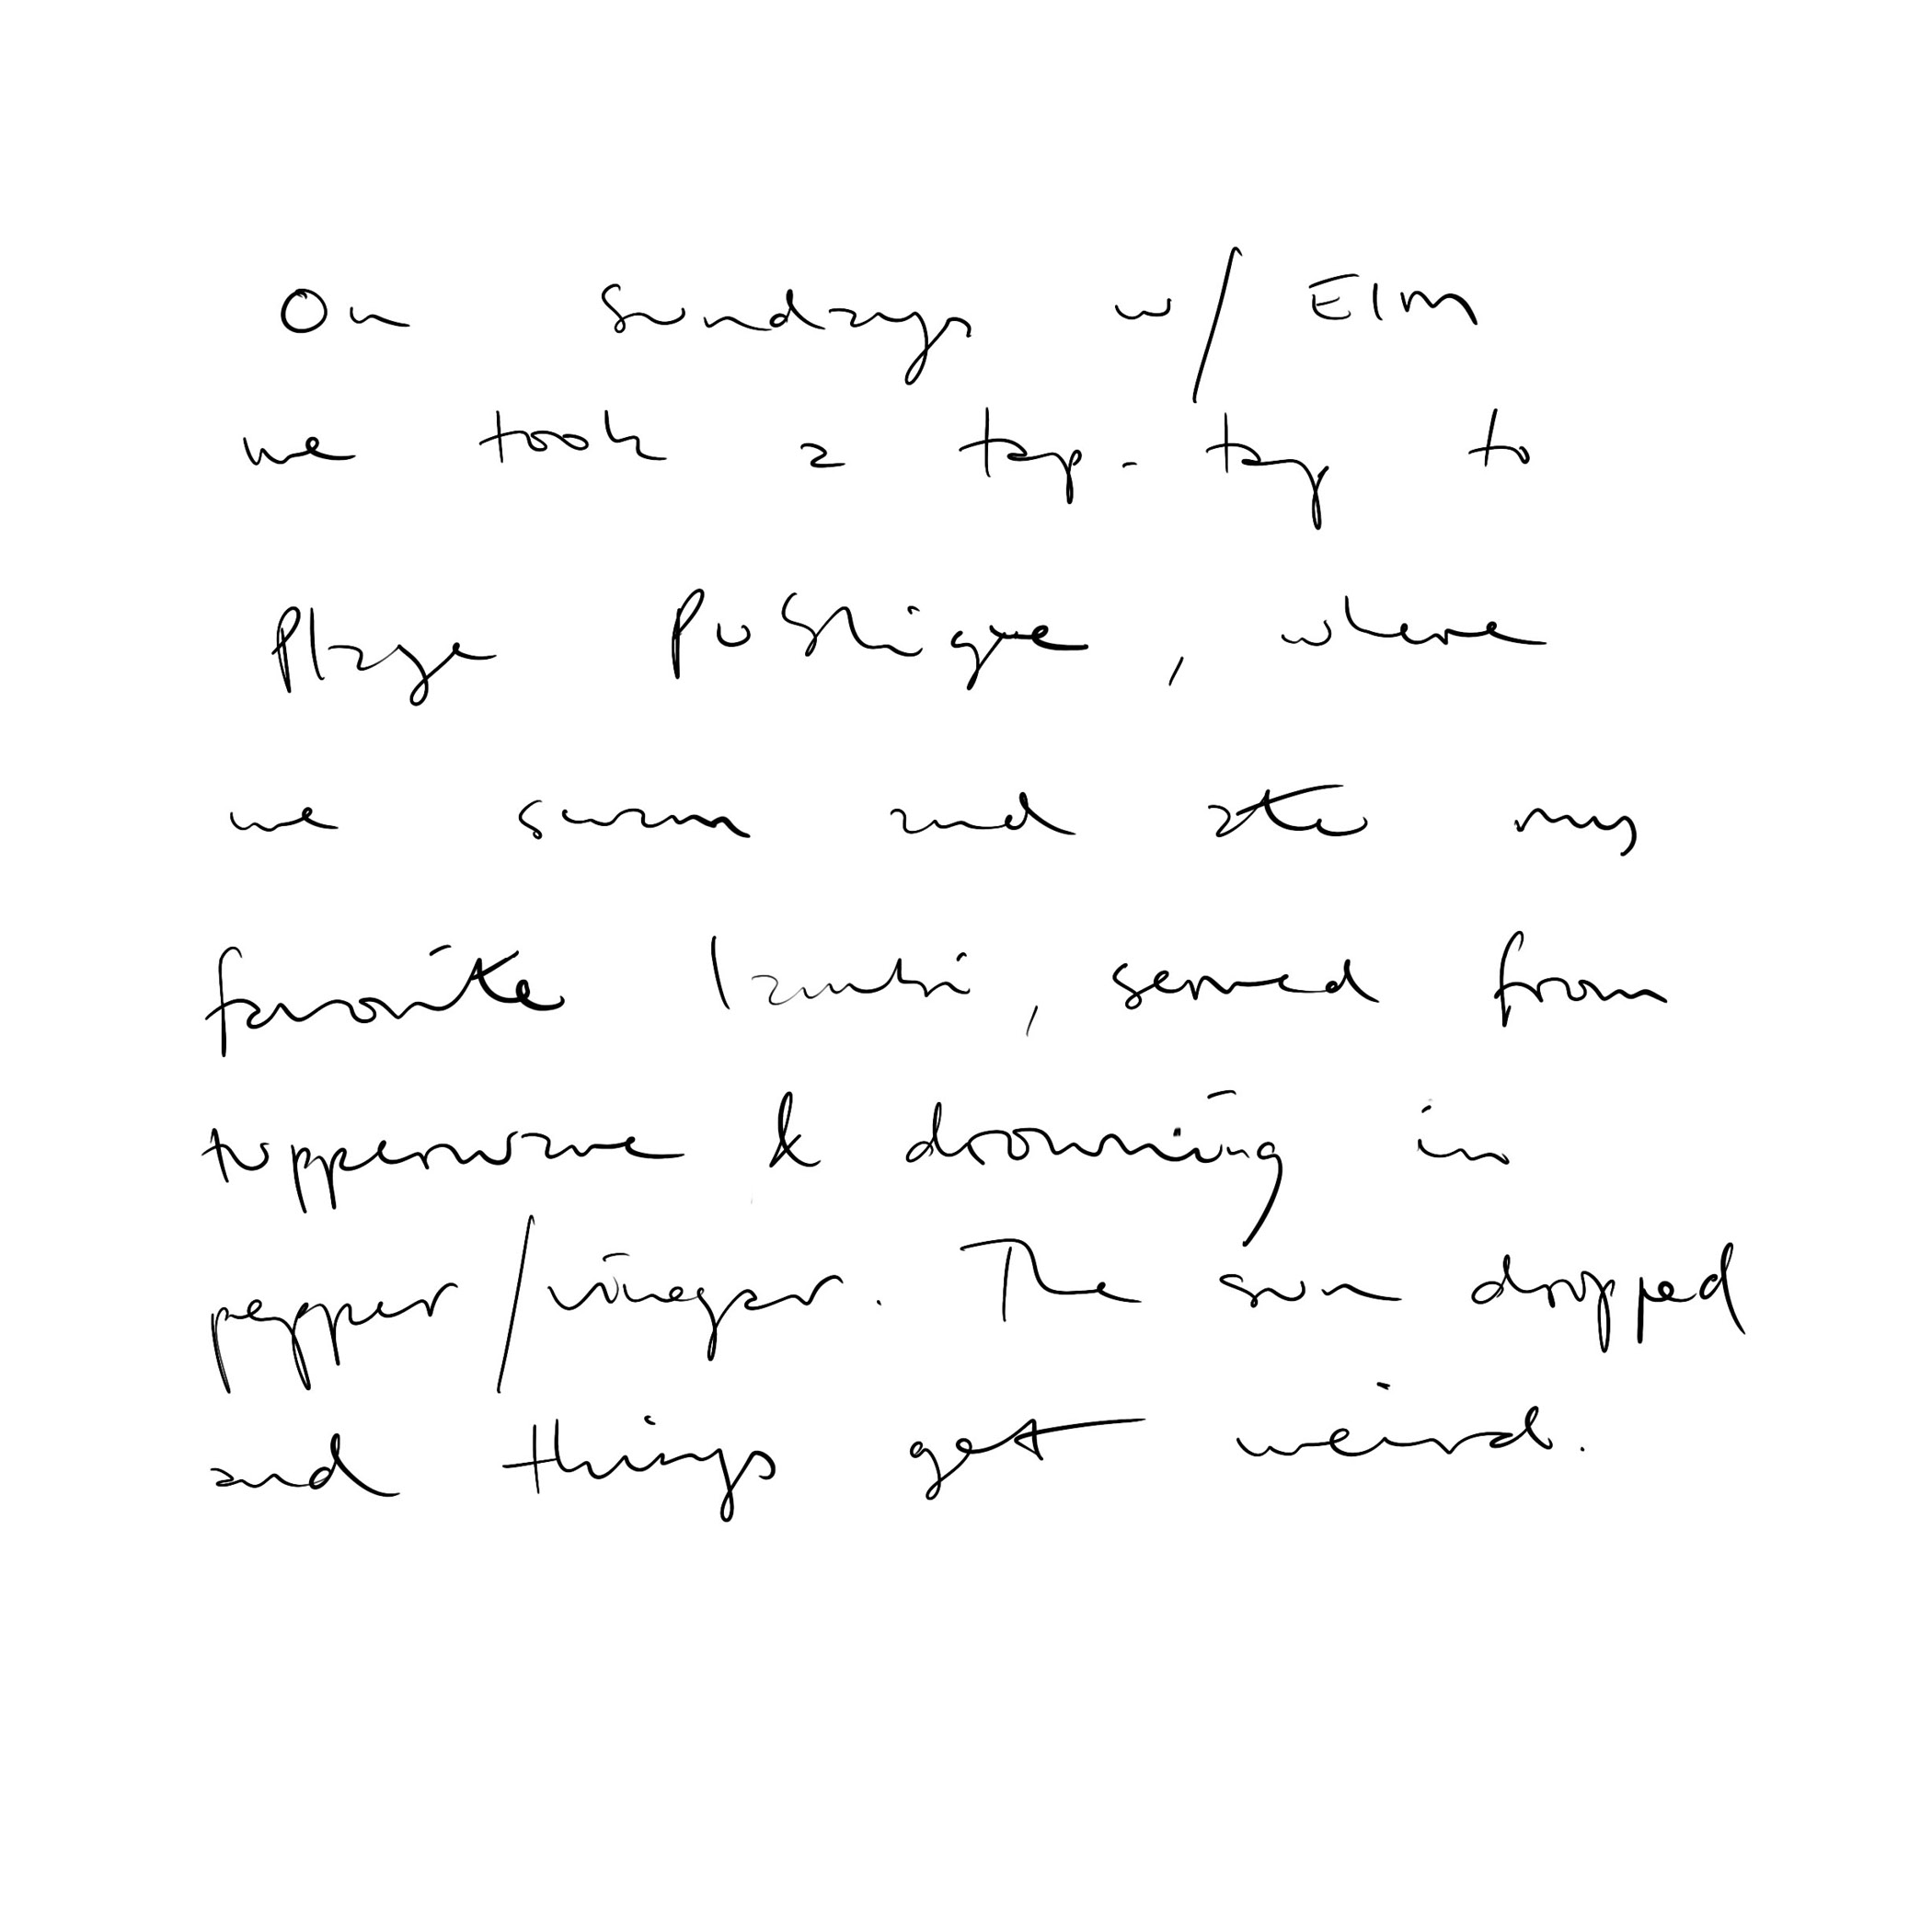 On Sundays w/ Elm
we took a tap-tap to
Plage Publique, where
we swam and ate my
favorite lambi, served from
tupperware & drowning in
pepper/vinegar. The sun dropped
and things got weird.